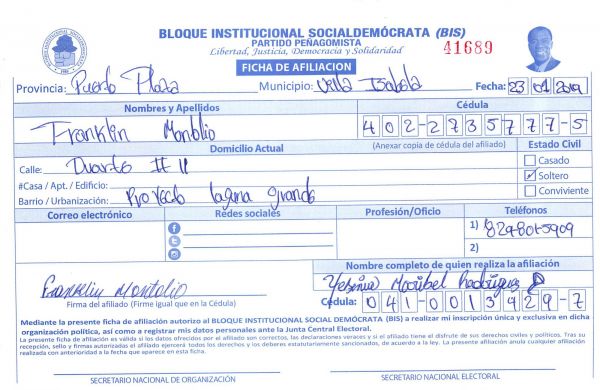 BLOQUE INSTITUCIONAL SOCIALDEMÓCRATA (BIS)
PARTIDO PEÑAGOMISTA
Libertad, Justicia, Democracia y Solidaridad
41689
FICHA DE AFILIACION
Provincia: Puerto Plata Municipio: Villa Isabela Fecha: 23 04 2019
Nombres y Apellidos Cédula
Franklin Montolio 402-2735777-5
Domicilio Actual (Anexar copia de cédula del afiliado) Estado Civil
Calle: Duarte # 11 Casado
#Casa / Apt. / Edificio: Soltero
Barrio / Urbanización: Proyecto laguna grande Conviviente
Correo electrónico Redes sociales Profesión/Oficio Teléfonos
1) 829-801-5909
2)
Nombre completo de quien realiza la afiliación
Franklin Montolio Yesenia Maribel Rodriguez
Firma del afiliado (Firme igual que en la Cédula) Cédula: 041-0013929-7
Mediante la presente ficha de afiliación autorizo al BLOQUE INSTITUCIONAL SOCIAL DEMÓCRATA (BIS) a realizar mi inscripción única y exclusiva en dicha
organización política, así como a registrar mis datos personales ante la Junta Central Electoral.
La presente ficha de afiliación es válida si los datos ofrecidos por el afiliado son correctos, las declaraciones veraces y si el afiliado tiene el disfrute de sus derechos civiles y políticos. Tras su
recepción, sello y firmas autorizadas el afiliado ejercerá todos los derechos y los deberes estatutariamente sancionados, de acuerdo a la ley. La presente afiliación anula cualquier afiliación
realizada con anterioridad a la fecha que aparece en esta ficha.
SECRETARIO NACIONAL DE ORGANIZACIÓN SECRETARIO NACIONAL ELECTORAL